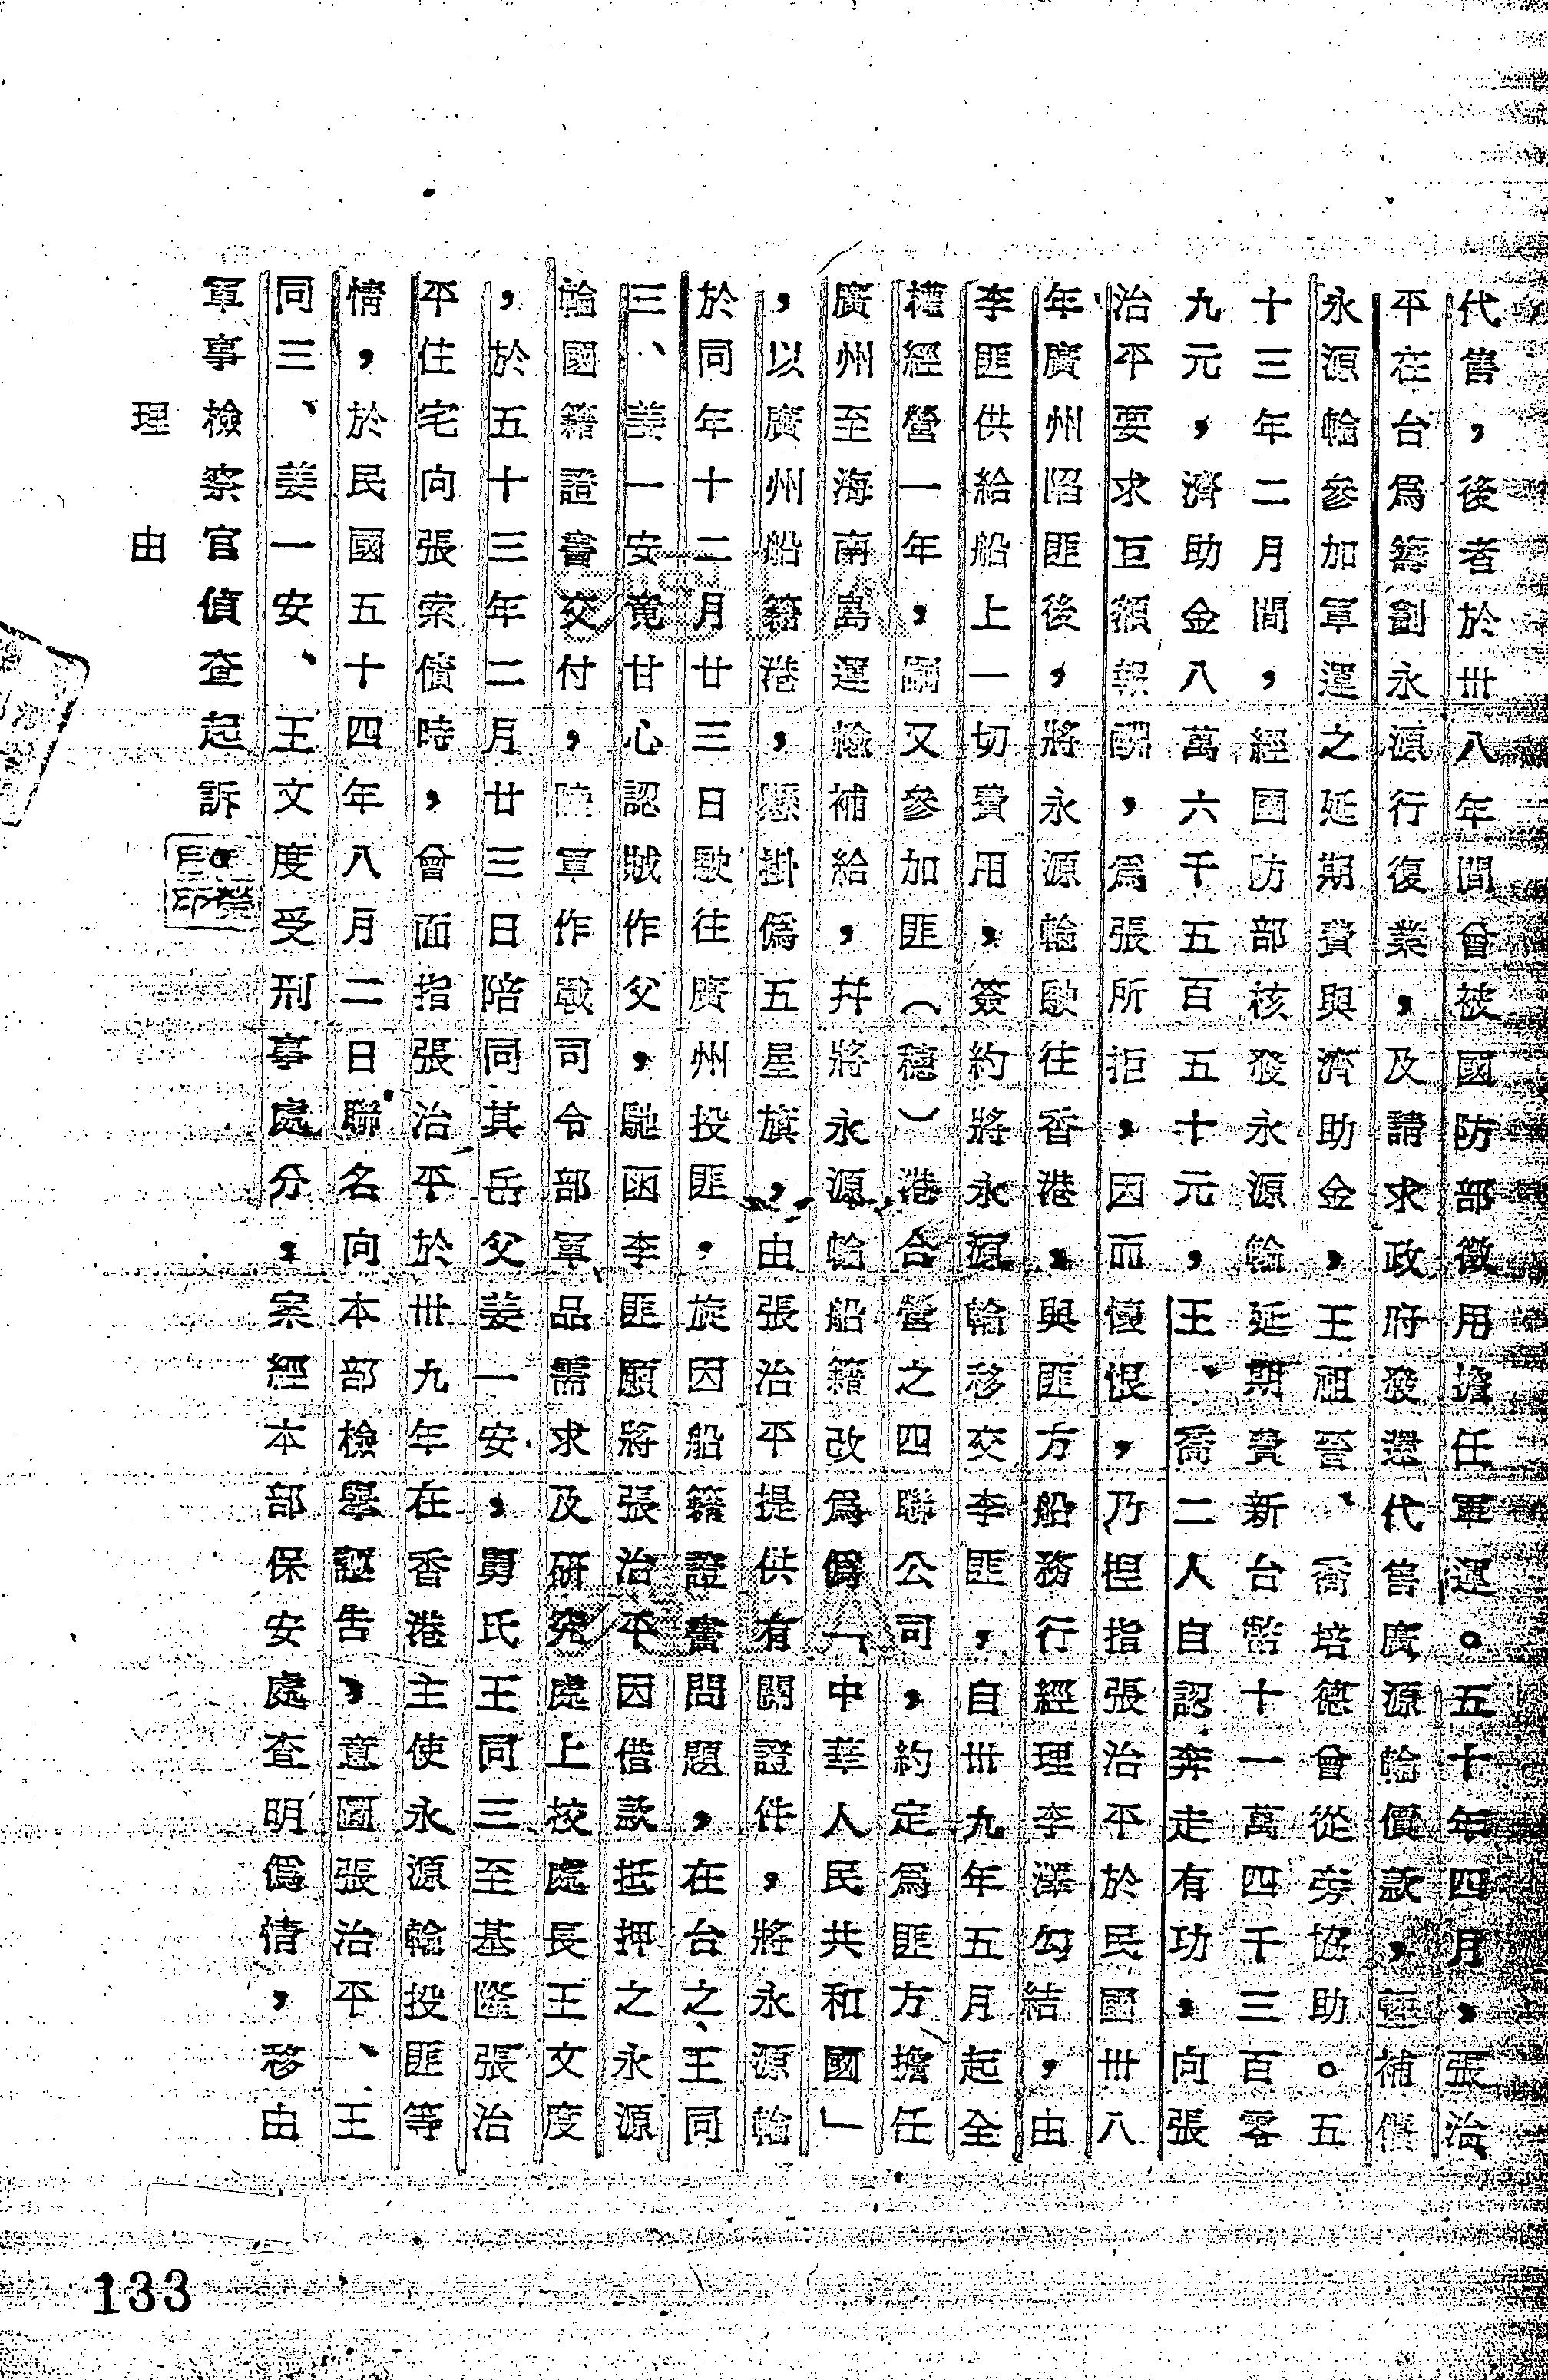 代售，後者於卅八年間曾被國防部徵用擔任軍運。五十年四月，張治
平在台爲籌劃永源行復業，及請求政府發還代售廣源輪價款，並補償
永源輪參加軍運之延期費與濟助金，王祖晉、喬培德曾從旁協助。五
十三年二月間，經國防部核發永源輪延期費新台幣十一萬四千三百零
九元，濟助金八萬六千五百五十元，王、喬二人自認奔走有功，向張
治平要求巨額報酬，爲張所拒，因而懷恨，乃揑指張治平於民國卅八
年廣州陷匪後，將永源輪駛往香港，與匪方船務行經理李澤勾結，由
李匪供給船上一切費用，簽約將永源輪移交李匪，自卅九年五月起全
權經營一年，嗣又參加匪（穗）港合營之四聯公司，約定爲匪方擔任
廣州至海南島運輸補給，幷將永源輪船籍改爲僞「中華人民共和國」
，以廣州船籍港，懸掛僞五星旗，由張治平提供有關證件，將永源輪
於同年十二月廿三日駛往廣州投匪，旋因船籍證書問題，在台之王同
三、姜一安竟甘心認賊作父，馳函李匪願將張治平因借款抵押之永源
輪國籍證書交付，陸軍作戰司令部軍品需求及研究處上校處長王文度
，於五十三年二月廿三日陪同其岳父姜一安，舅氏王同三至基隆張治
平住宅向張索債時，曾面指張治平於卅九年在香港主使永源輪投匪等
情，於民國五十四年八月二日聯名向本部檢舉誣告，意圖張治平、王
同三、姜一安、王文度受刑事處分。案經本部保安處查明僞情，移由
軍事檢察官偵查起訴。
理由
133